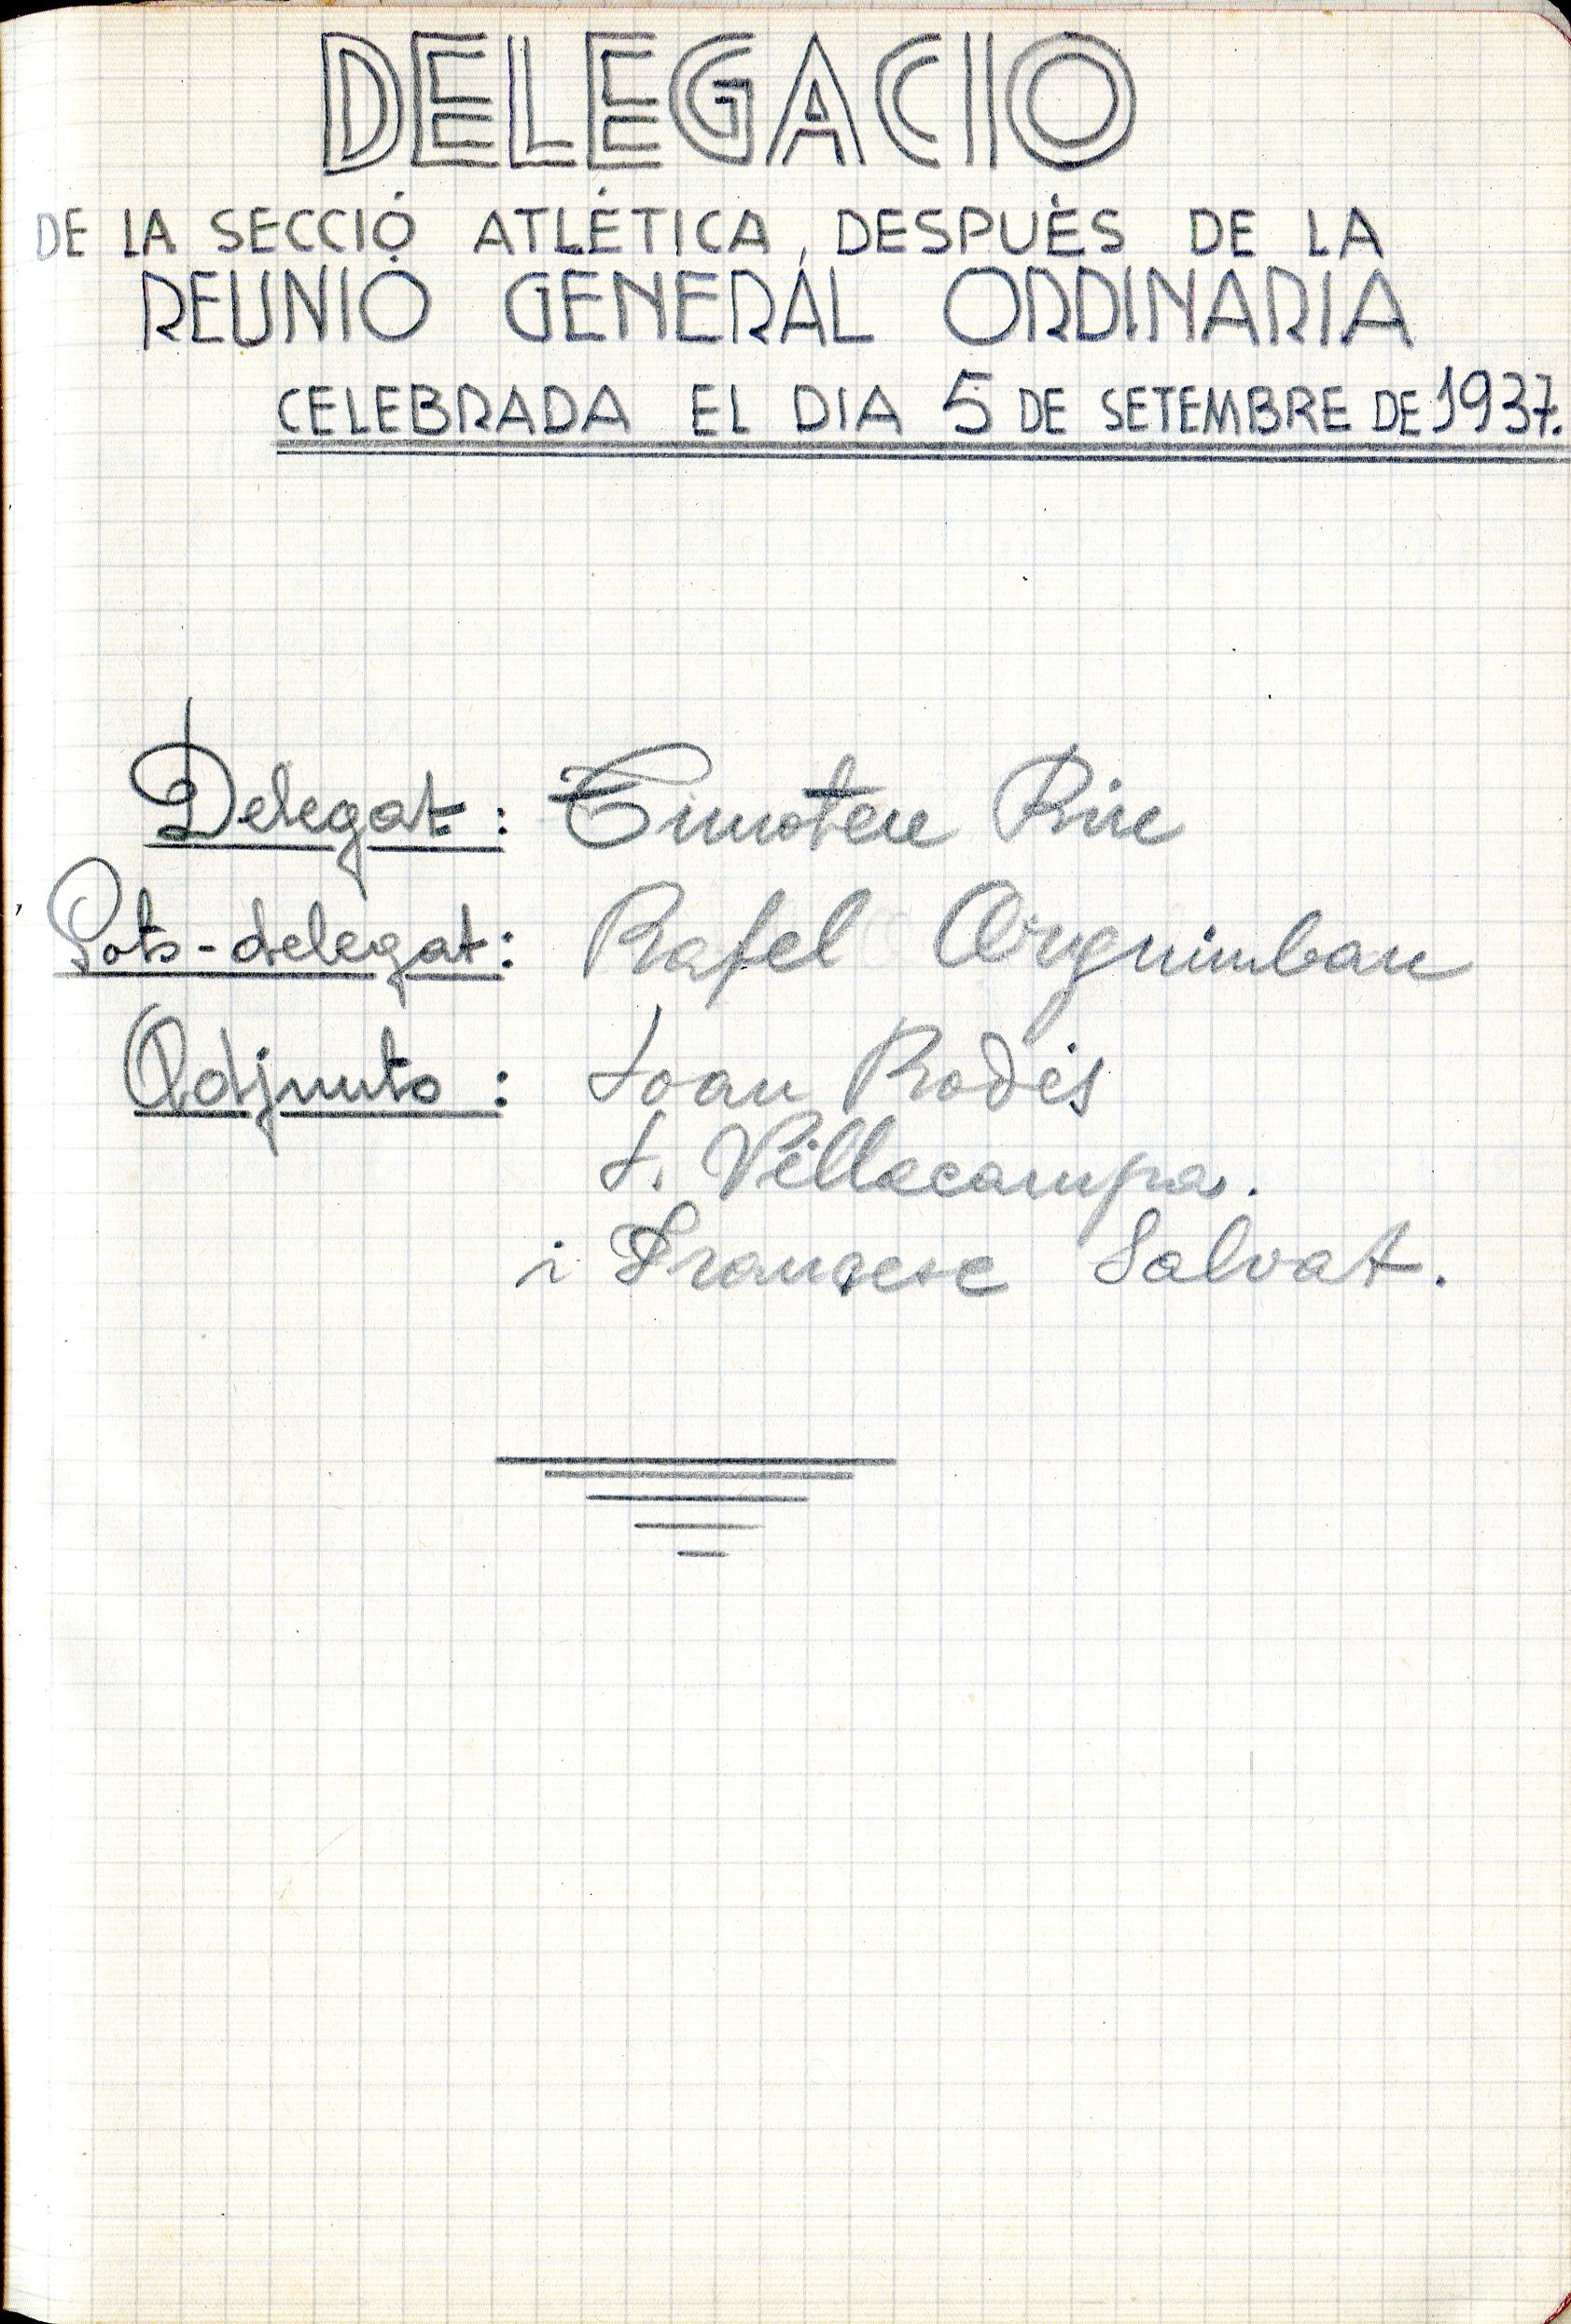 DELEGACIO
DE LA SECCIÓ ATLÉTICA, DESPUÉS DE LA
REUNIÓ GENERAL ORDINARIA
CELEBRADA EL DIA 5 DE SETEMBRE DE 1937.
Delegat: Timoteu Riu
Sots-delegat: Rafel Arguimbau
Adjunts: Joan Rodés
J. Villacampa.
i Francesc Salvat.